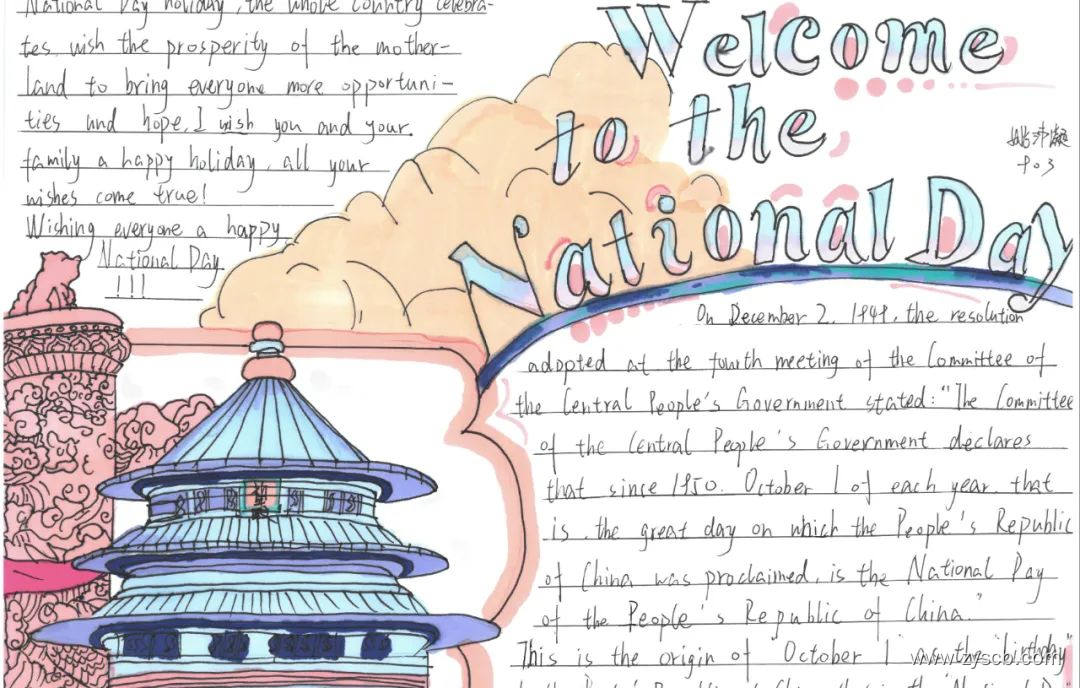 National Day holiday, the whole country celebra-
tes, wish the prosperity of the mother-
land to bring everyone more opportuni-
ties und hope, I wish you and your
family a happy holiday, all your
wishes come true!
Wishing everyone a happy
National Day
!!!
Welcome
to the
National Day
903
On December 2, 1949, the resolution
adopted at the fourth meeting of the Committee of
the Central People's Government stated: "The Committee
of the Central People's Government declares
that since 1950. October 1 of each year, that
is, the great day on which the People's Republic
of China was proclaimed, is the National Day
of the People's Republic of China."
This is the origin of October 1 as the "birthday"
www.zyscbl.com